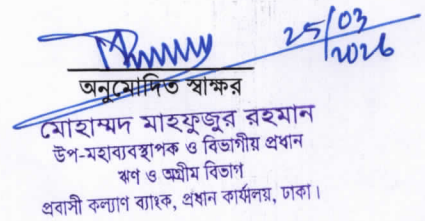 25/03
2026
অনুমোদিত স্বাক্ষর
মোহাম্মদ মাহফুজুর রহমান
উপ-মহাব্যবস্থাপক ও বিভাগীয় প্রধান
ঋণ ও অগ্রীম বিভাগ
প্রবাসী কল্যাণ ব্যাংক, প্রধান কার্যালয়, ঢাকা।